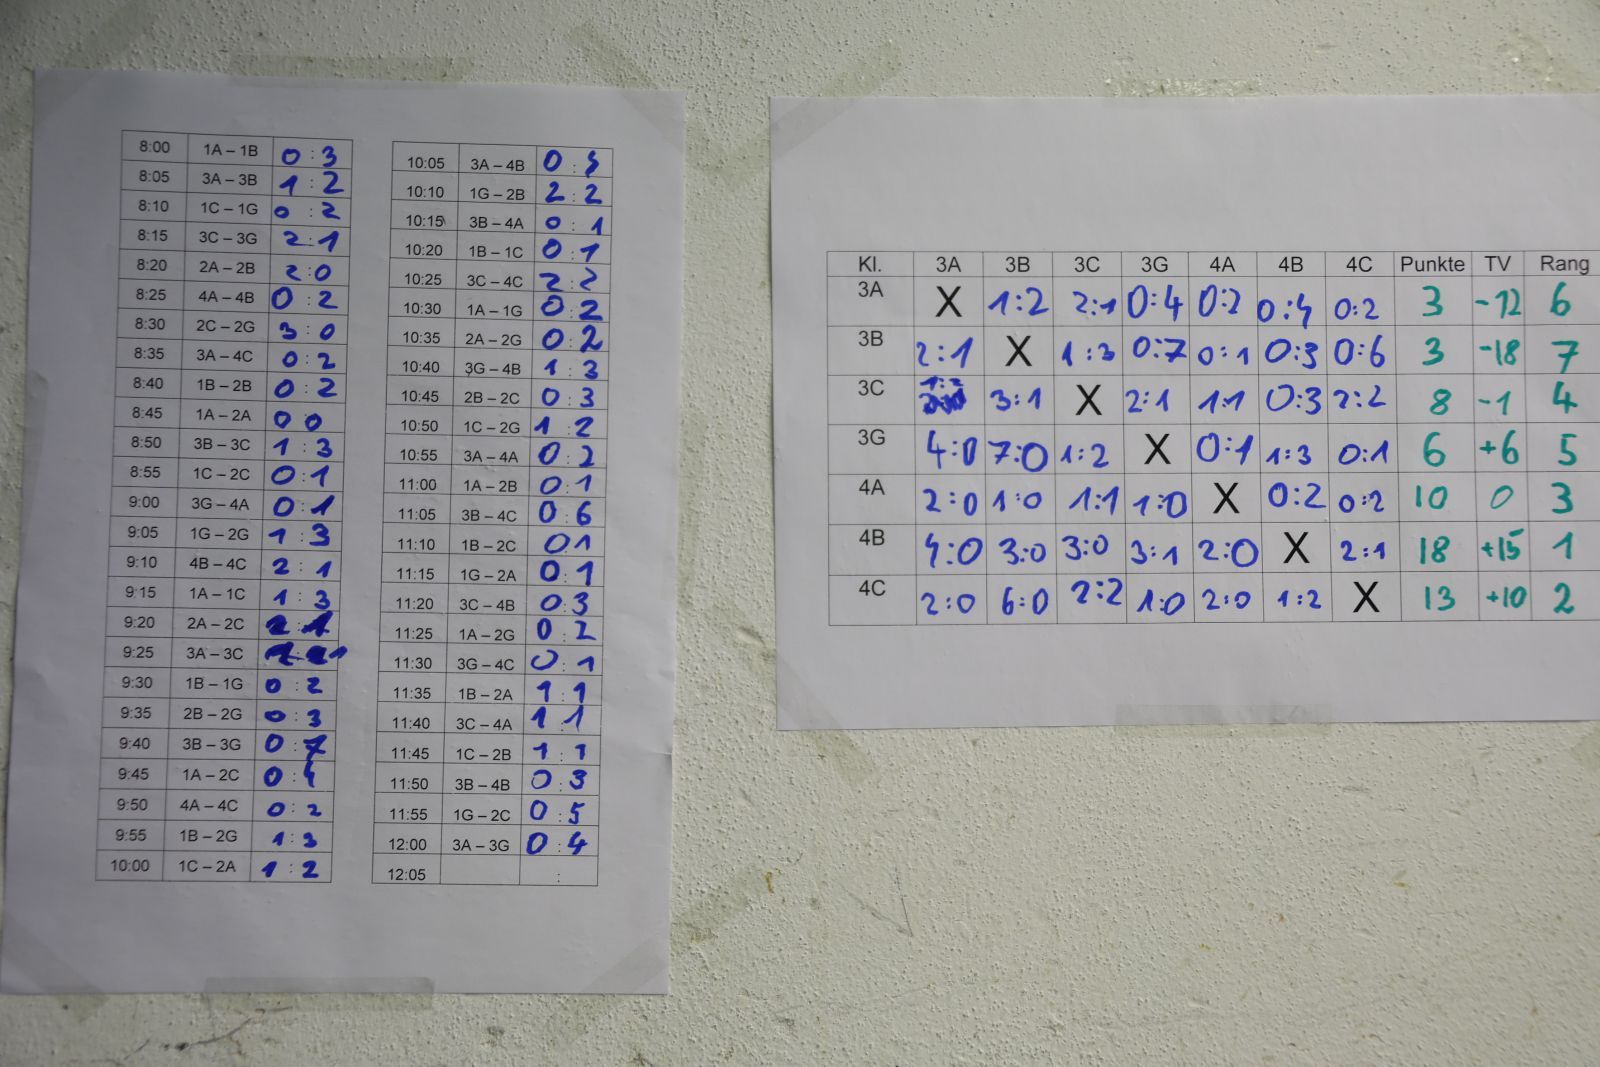 8:00 1A – 1B 0 : 3
8:05 3A – 3B 1 : 2
8:10 1C – 1G 0 : 2
8:15 3C – 3G 2:1
8:20 2A – 2B 2:0
8:25 4A – 4B 0 : 2
8:30 2C – 2G 3:0
8:35 3A – 4C 0:2
8:40 1B – 2B 0 : 2
8:45 1A – 2A 0 0
8:50 3B – 3C 1 : 3
8:55 1C – 2C 0:1
9:00 3G – 4A 0:1
9:05 1G – 2G 1 : 3
9:10 4B – 4C 2 : 1
9:15 1A – 1C 1 : 3
9:20 2A – 2C
9:25 3A – 3C
9:30 1B – 1G 0 : 2
9:35 2B – 2G 0 : 3
9:40 3B – 3G 0 : 7
9:45 1A – 2C 0 : 4
9:50 4A – 4C 0 : 2
9:55 1B – 2G 1 : 3
10:00 1C – 2A 1 : 2
10:05 3A – 4B 0 :
10:10 1G – 2B 2 : 2
10:15 3B – 4A 0 : 1
10:20 1B – 1C 0 : 1
10:25 3C – 4C 2 : 2
10:30 1A – 1G 0 : 2
10:35 2A – 2G 0 : 2
10:40 3G – 4B 1 : 3
10:45 2B – 2C 0 : 3
10:50 1C – 2G 1 : 2
10:55 3A – 4A 0 : 2
11:00 1A – 2B 0 : 1
11:05 3B – 4C 0 : 6
11:10 1B – 2C 0:1
11:15 1G – 2A 0 : 1
11:20 3C – 4B 0:3
11:25 1A – 2G 0 : 2
11:30 3G – 4C 0 : 1
11:35 1B – 2A 1 : 1
11:40 3C – 4A 1 : 1
11:45 1C – 2B 1 : 1
11:50 3B – 4B 0 : 3
11:55 1G – 2C 0 : 5
12:00 3A – 3G 0 : 4
12:05 :
Kl. 3A 3B 3C 3G 4A 4B 4C Punkte TV Rang
3A X 1:2 2:1 0:4 0:2 0:2 3 -12 6
3B 2:1 X 1:3 0:7 0:1 0:3 0:6 3 -18 7
3C 1:2 3:1 X 2:1 1:1 0:3 2:2 8 -1 4
3G 4:0 7:0 1:2 X 0:1 1:3 0:1 6 +6 5
4A 2:0 1:0 1:1 1:0 X 0:2 0:2 10 0 3
4B 3:0 3:0 3:1 2:0 X 2:1 18 +15 1
4C 2:0 6:0 2:2 1:0 2:0 1:2 X 13 +10 2